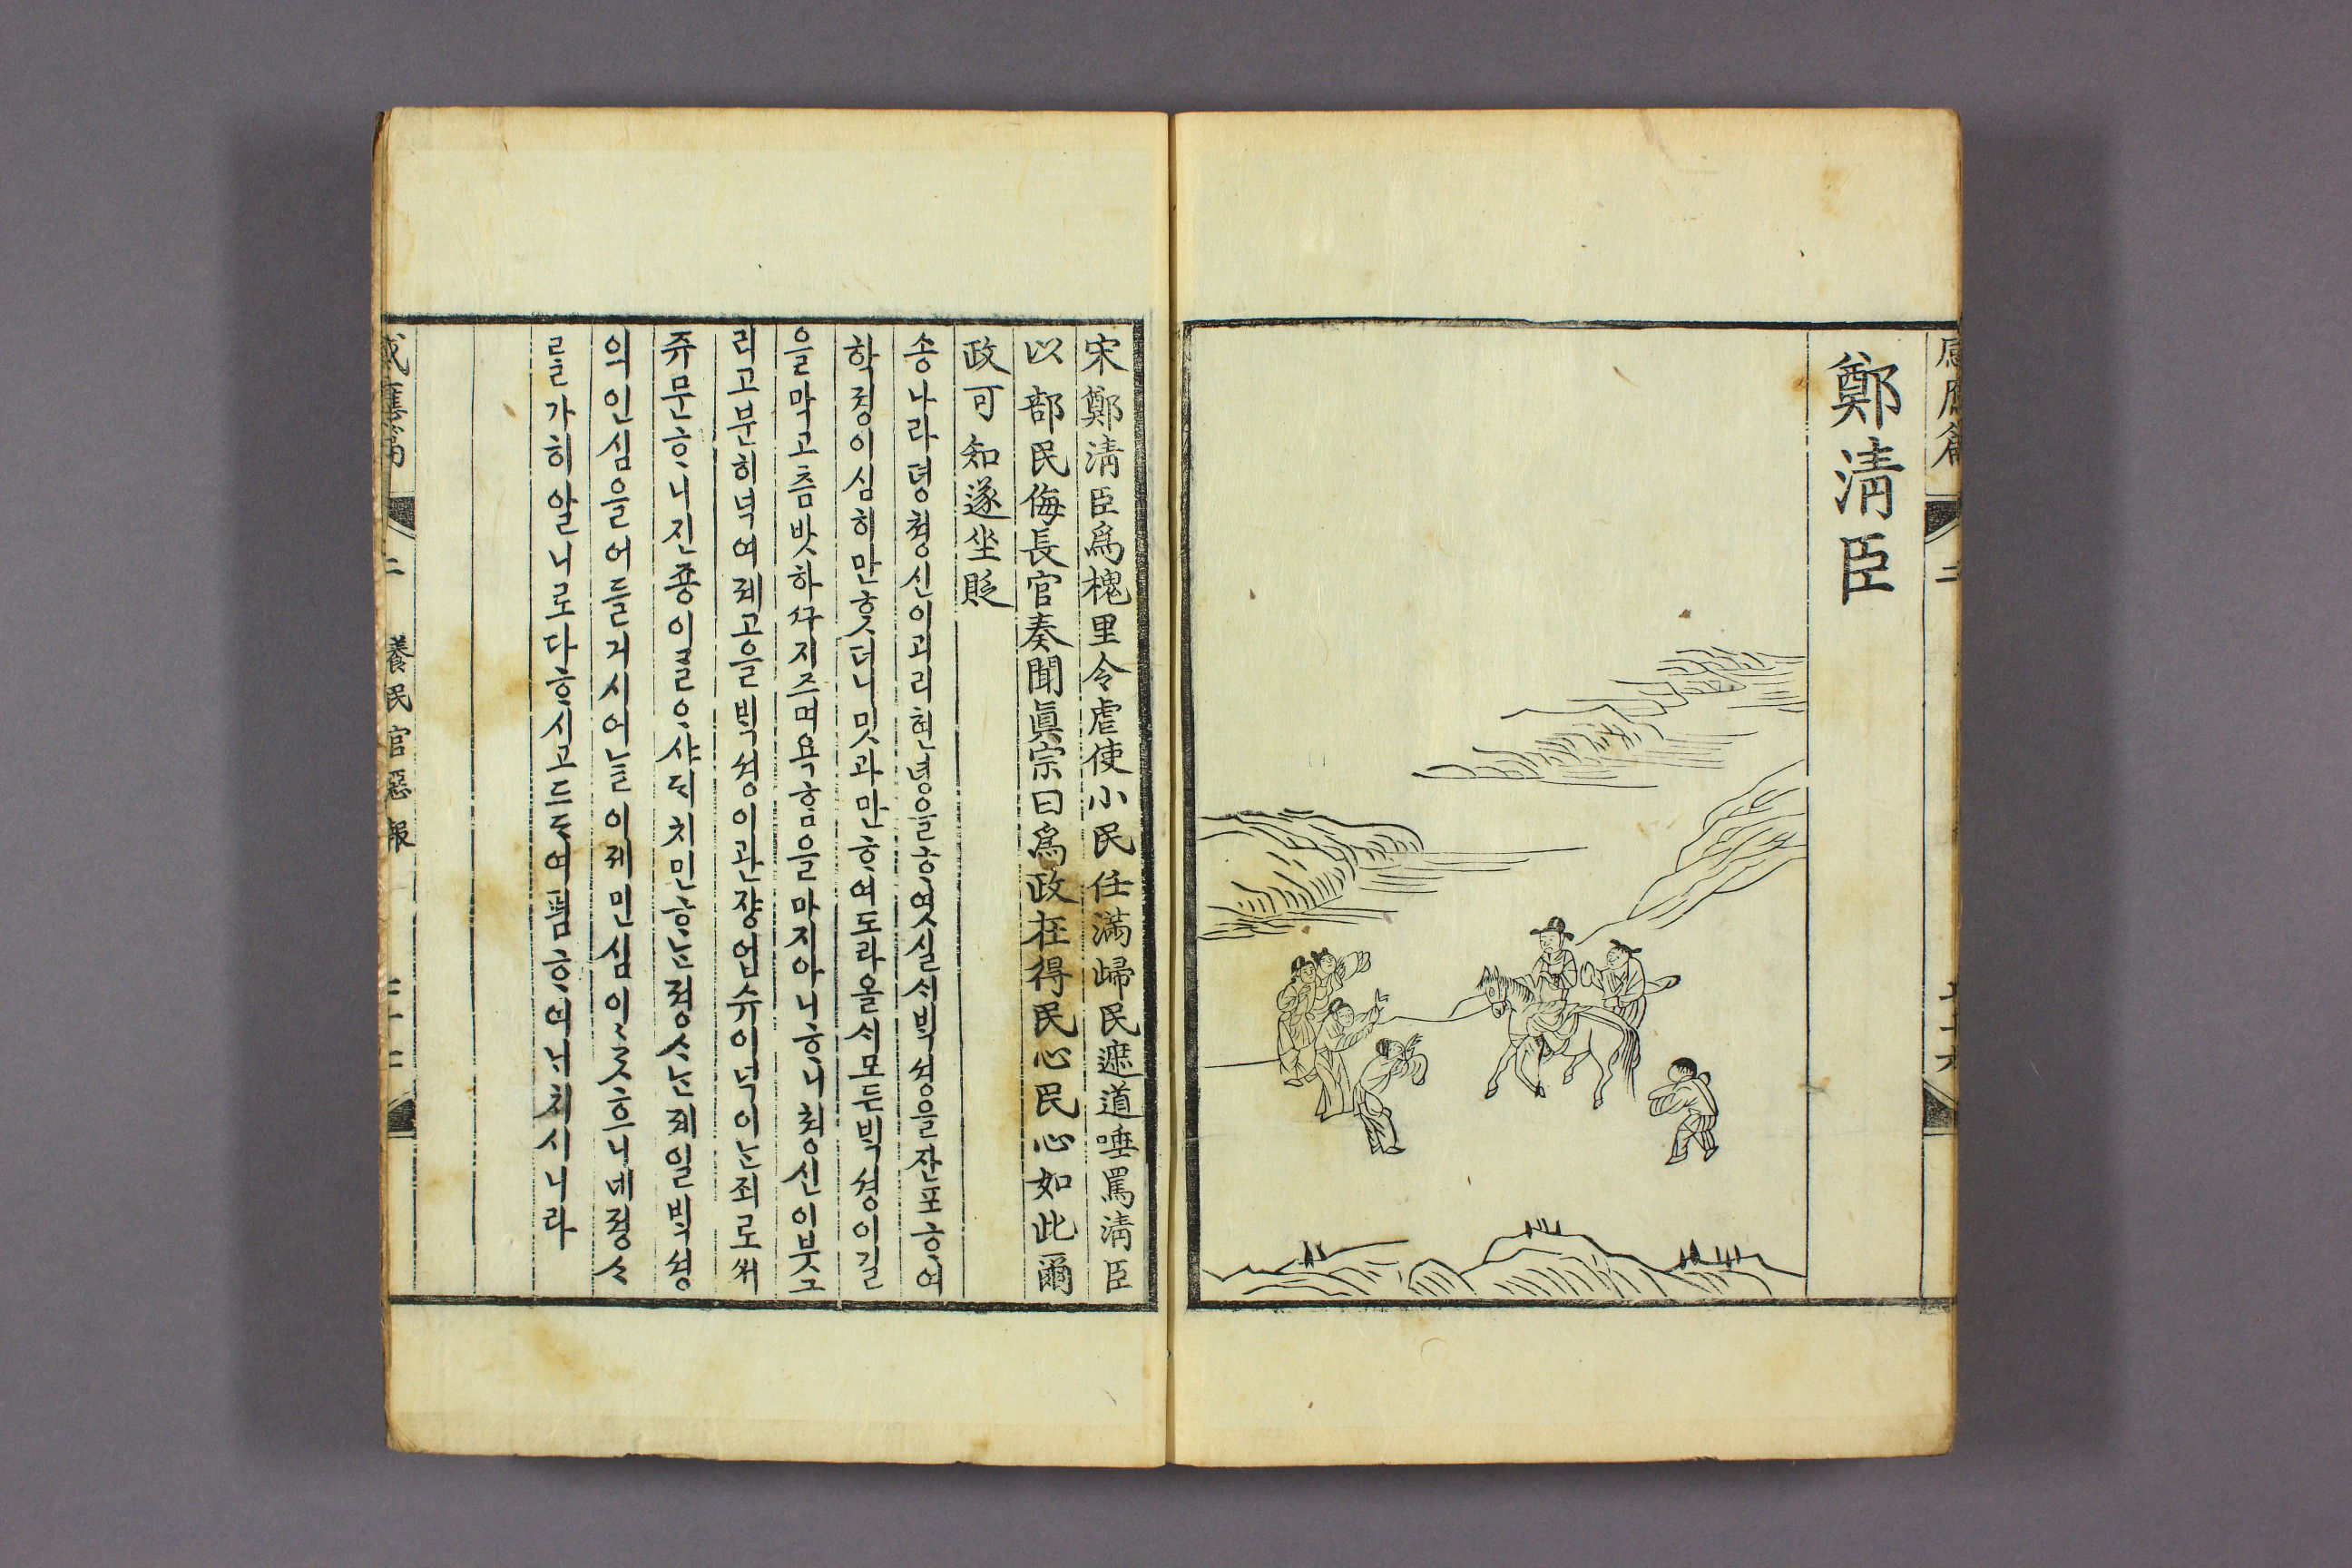 鄭淸臣
宋鄭淸臣爲槐里令虐使小民任滿歸民遮道唾罵淸臣
以部民侮長官奏聞眞宗曰爲政在得民心民心如此爾
政可知遂坐貶
송나라뎡쳥신이괴리현녕을ᄒᆞ엿실ᄉᆡᄇᆡᆨ셩을잔포ᄒᆞ여
학졍이심히만ᄒᆞᆺ더니밋과만ᄒᆞ여도라올ᄉᆡ모든ᄇᆡᆨ셩이길
을막고츔밧하ᄭᅮ지즈며욕ᄒᆞᆷ을마지아니ᄒᆞ니쳥신이붓그
리고분히넉여졔고을ᄇᆡᆨ셩이관쟝업슈이넉이ᄂᆞᆫ죄로ᄡᅥ
쥬문ᄒᆞ니진죵이ᄀᆞᆯᄋᆞ샤ᄃᆡ치민ᄒᆞᄂᆞᆫ졍ᄉᆞᄂᆞᆫ졔일ᄇᆡᆨ셩
의인심을어들거시어ᄂᆞᆯ이졔민심이이ᄀᆞᆺᄒᆞ니네졍ᄉᆞ
ᄅᆞᆯ가히알니로다ᄒᆞ시고드듸여폄ᄒᆞ여ᄂᆡ치시니라
感應篇 二 養民官惡報